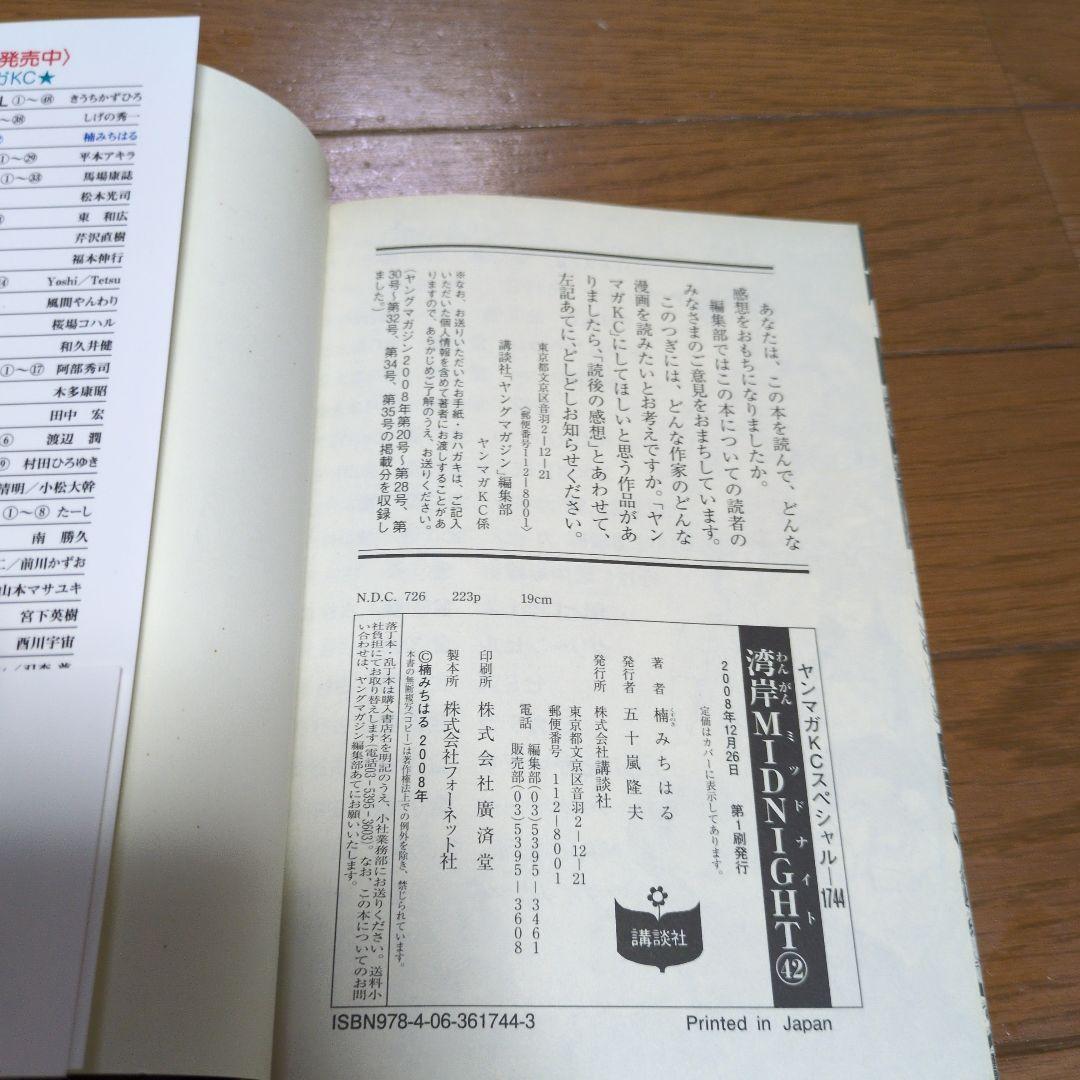 発売中〉
ガKC★
L ①～㊽ きうちかずひろ
～㊳ しげの秀一
楠みちはる
①～㉙ 平本アキラ
①～㉝ 馬場康誌
松本光司
東 和広
芹沢直樹
福本伸行
Yoshi／Tetsu
風間やんわり
桜場コハル
和久井健
①～⑰ 阿部秀司
木多康昭
田中 宏
⑥ 渡辺 潤
⑨ 村田ひろゆき
清明／小松大幹
①～⑧ たーし
南 勝久
／前川かずお
山本マサユキ
宮下英樹
西川宇宙
あなたは、この本を読んで、どんな
感想をおもちになりましたか。
編集部ではこの本についての読者の
みなさまのご意見をおまちしています。
このつぎには、どんな作家のどんな
漫画を読みたいとお考えですか。「ヤン
マガKC」にしてほしいと思う作品があ
りましたら、「読後の感想」とあわせて、
左記あてに、どしどしお知らせください。
東京都文京区音羽2－12－21
〈郵便番号112－8001〉
講談社「ヤングマガジン」編集部
ヤンマガKC係
※なお、お送りいただいたお手紙・おハガキは、ご記入
いただいた個人情報を含めて著者にお渡しすることがあ
りますので、あらかじめご了解のうえ、お送りください。
（ヤングマガジン2008年第20号～第28号、第
30号～第32号、第34号、第35号の掲載分を収録し
ました。）
N.D.C. 726 223p 19cm
ヤンマガKCスペシャル－1744
湾岸MIDNIGHT㊷
わんがん ミッドナイト
2008年12月26日 第1刷発行
定価はカバーに表示してあります。
著者 楠みちはる
くすのき
発行者 五十嵐隆夫
発行所 株式会社講談社
東京都文京区音羽2－12－21
郵便番号 112－8001
電話 編集部(03)5395－3461
販売部(03)5395－3608
印刷所 株式会社廣済堂
製本所 株式会社フォーネット社
©楠みちはる 2008年
本書の無断複写(コピー)は著作権法上での例外を除き、禁じられています。
落丁本・乱丁本は購入書店名を明記のうえ、小社業務部にお送りください。送料小
社負担にてお取り替えします(電話03－5395－3603)。なお、この本についてのお問
い合わせは、ヤングマガジン編集部あてにお願いいたします。
講談社
ISBN978-4-06-361744-3
Printed in Japan